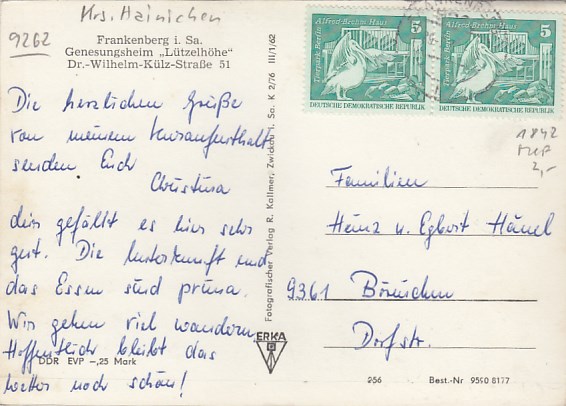 Krs. Hainichen
9262
Frankenberg i. Sa.
Genesungsheim „Lützelhöhe"
Dr.-Wilhelm-Külz-Straße 51
Die herzlichen Grüße
von meinem Kuraufenthalt
senden Euch
Christina
hier gefällt es hier sehr
gut. Die Unterkunft und
das Essen sind prima.
Wir gehen viel wandern
Hoffentlich bleibt das
Wetter noch schön!
DDR EVP -,25 Mark
Fotografischer Verlag R. Kallmer, Zwickau i. Sa. K 2/76 III/1/62
ERKA
Alfred-Brehm-Haus 5
Tierpark Berlin
DEUTSCHE DEMOKRATISCHE REPUBLIK
Alfred-Brehm-Haus 5
Tierpark Berlin
DEUTSCHE DEMOKRATISCHE REPUBLIK
1842
2,-
Familien
Heinz u. Egbert Hänel
9361 Börnichen
Dorfstr.
956 Best.-Nr 9590 8177